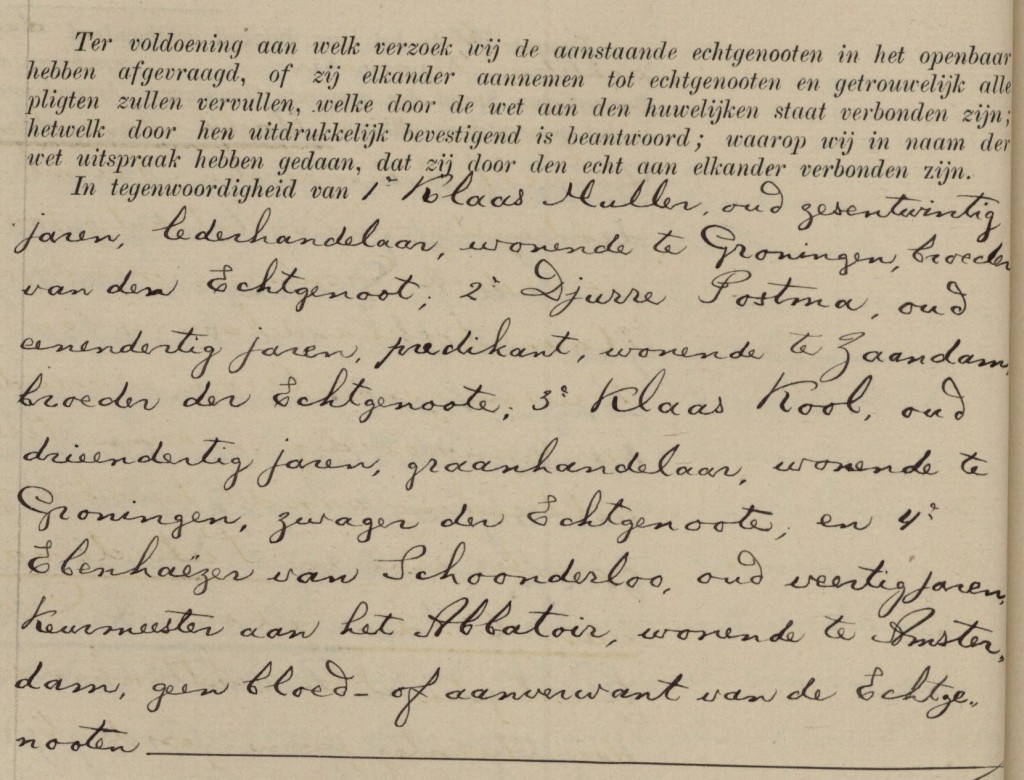 Ter voldoening aan welk verzoek wij de aanstaande echtgenooten in het openbaar
hebben afgevraagd, of zij elkander aannemen tot echtgenooten en getrouwelijk alle
pligten zullen vervullen, welke door de wet aan den huwelijken staat verbonden zijn;
hetwelk door hen uitdrukkelijk bevestigend is beantwoord; waarop wij in naam der
wet uitspraak hebben gedaan, dat zij door den echt aan elkander verbonden zijn.
In tegenwoordigheid van 1° Klaas Muller, oud zesentwintig
jaren, lederhandelaar, wonende te Groningen, broeder
van den Echtgenoot; 2° Djurre Postma, oud
eenendertig jaren, predikant, wonende te Zaandam,
broeder der Echtgenoote; 3° Klaas Kool, oud
drieendertig jaren, graanhandelaar, wonende te
Groningen, zwager der Echtgenoote, en 4°
Ebenhaëzer van Schoonderloo, oud veertig jaren,
Keurmeester aan het Abbatoir, wonende te Amster„
dam, geen bloed- of aanverwant van de Echtge„
nooten